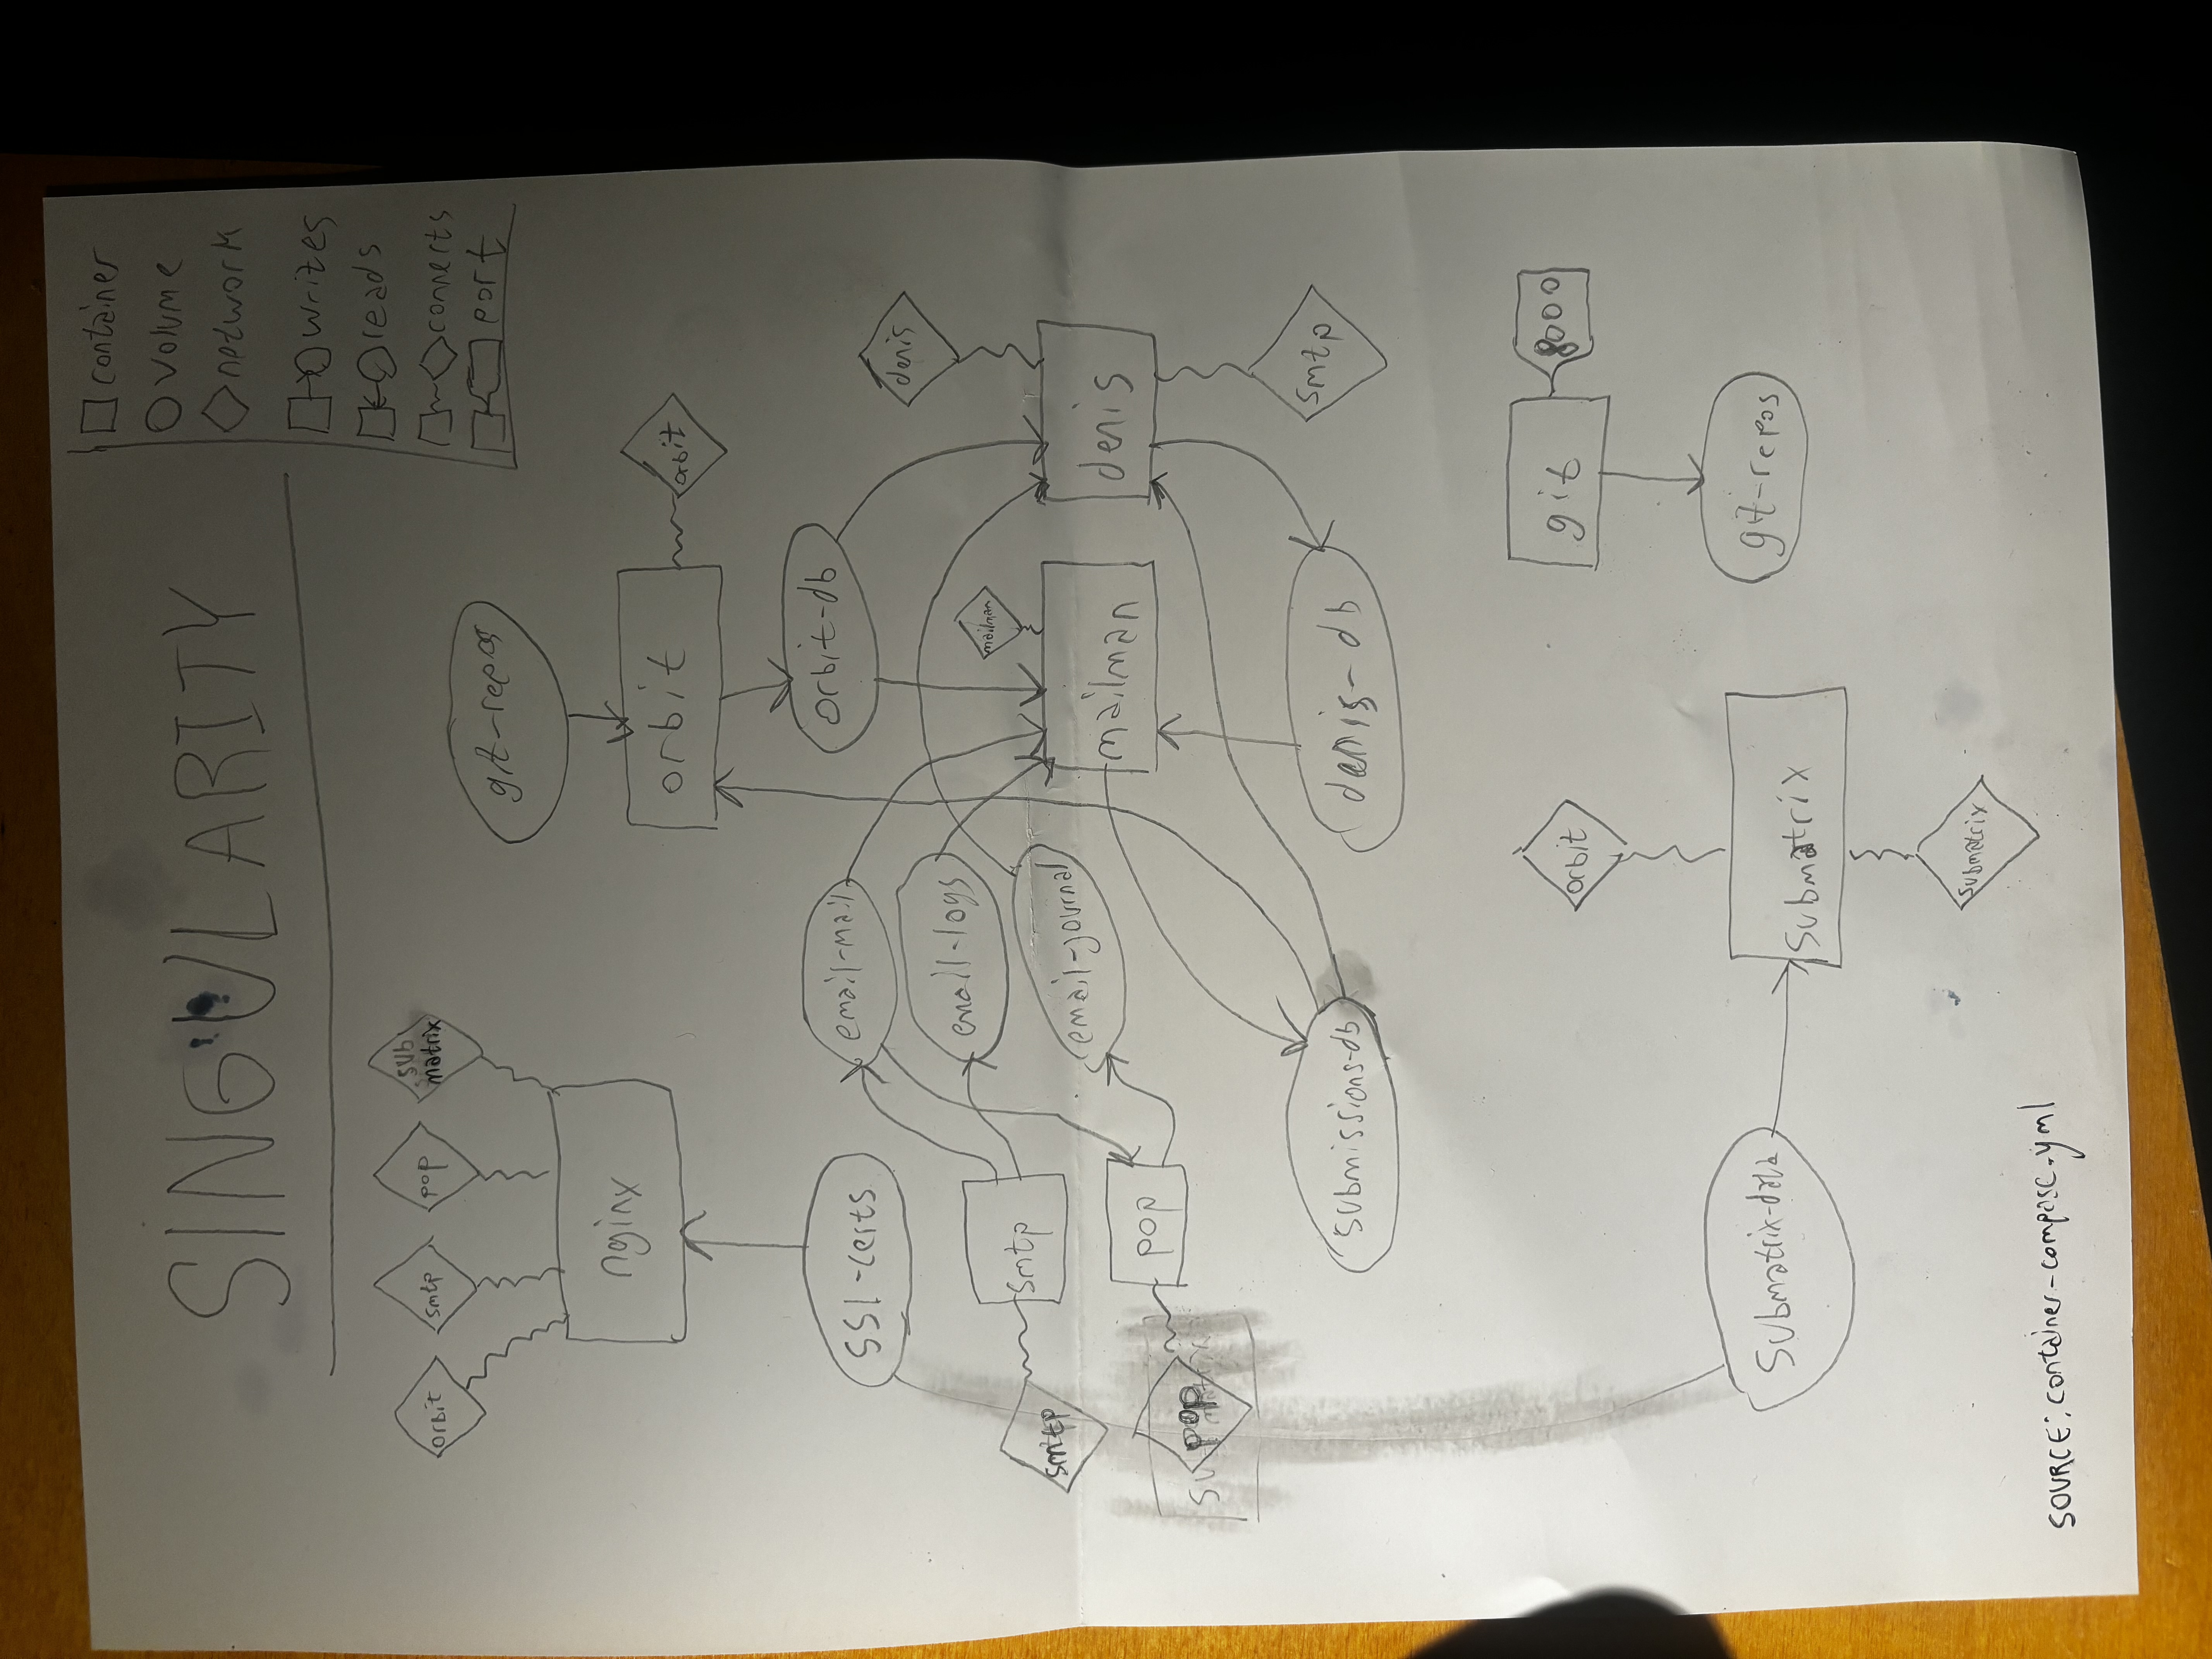 SINGULARITY
container
volume
network
writes
reads
connects
port
orbit
smtp
pop
sub
matrix
git-repos
nginx
orbit
orbit
ssl-certs
email-mail
orbit-db
denis
email-logs
mailman
smtp
smtp
email-journal
mailman
denis
pop
pop
submissions-db
denis-db
smtp
orbit
git
8000
submatrix-data
submatrix
git-repos
submatrix
SOURCE: container-compose.yml